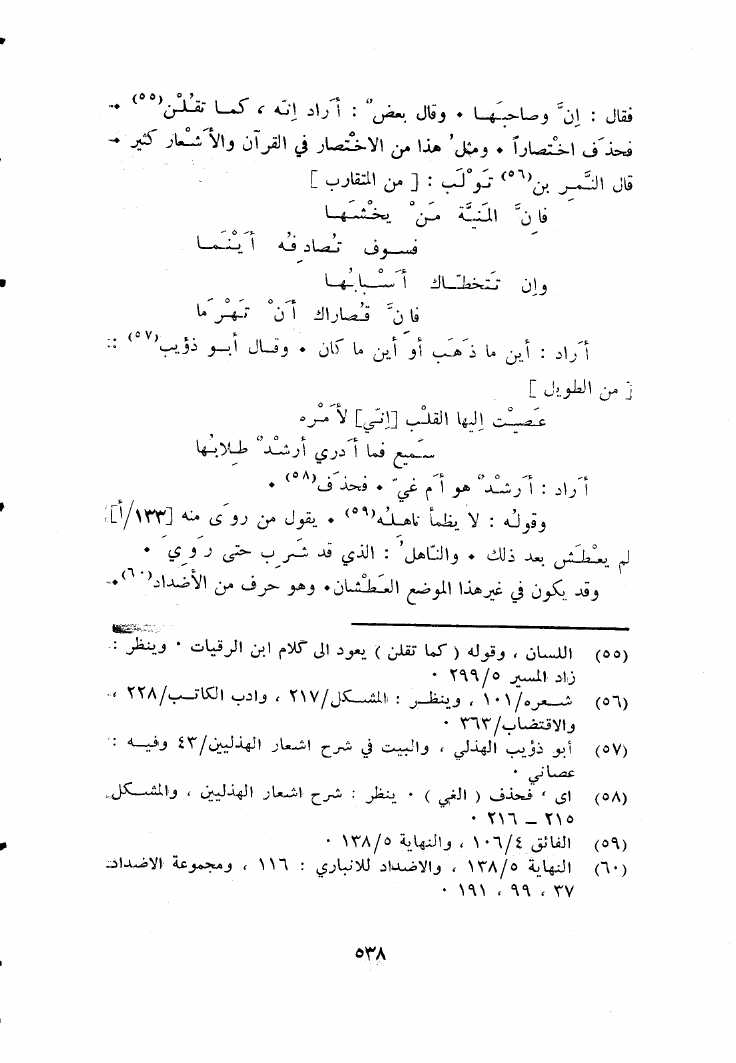 فقال : إنَّ وصاحبَها • وقال بعضٌ : أَراد إنّه ، كما تقُلْن(٥٥) •
فحذَف اختصاراً • ومثلُ هذا من الاختْصار في القرآن والأَشْعار كثير •
قال النَّمِر بن(٥٦) تَوْلَب : [ من المتقارب ]
فاِنَّ المَنيَّة مَنْ يخْشَهَا
فسوف تُصادِفُه أَيْنَمَا
وإن تَتَخطّاك أَسْبابُها
فاِنَّ قُصاراك أَنْ تَهْرَمَا
أَراد : أين ما ذَهَب أو أين ما كان • وقال أبو ذؤيب(٥٧) :
[ من الطويل ]
عَصَيْت إليها القلْب [إنّي] لأَمْرِه
سَميع فما أَدري أرشْدٌ طِلابُها
أَراد : أَرشْدٌ هو أَم غيّ • فحذَف(٥٨) •
وقولُه : لا يظمأ ناهلُه(٥٩) • يقول من روَى منه [١٣٣/أ]
لم يعْطَش بعد ذلك • والنّاهلُ : الذي قد شَرِب حتى رَوِي •
وقد يكون في غيرهذا الموضع العَطْشان• وهو حرف من الأضْداد(٦٠)•
(٥٥) اللسان ، وقوله ( كما تقلن ) يعود الى كلام ابن الرقيات • وينظر :
زاد المسير ٢٩٩/٥ •
(٥٦) شعره/١٠١ ، وينظر : المشكل/٢١٧ ، وادب الكاتب/٢٢٨ ،
والاقتضاب/٣٦٣ •
(٥٧) أبو ذؤيب الهذلي ، والبيت في شرح اشعار الهذليين/٤٣ وفيه :
عصاني •
(٥٨) اى ، فحذف ( الغي ) • ينظر : شرح اشعار الهذليين ، والمشكل
٢١٥ ــ ٢١٦ •
(٥٩) الفائق ١٠٦/٤ ، والنهاية ١٣٨/٥ •
(٦٠) النهاية ١٣٨/٥ ، والاضداد للانباري : ١١٦ ، ومجموعة الاضداد
٣٧ ، ٩٩ ، ١٩١ •
٥٣٨